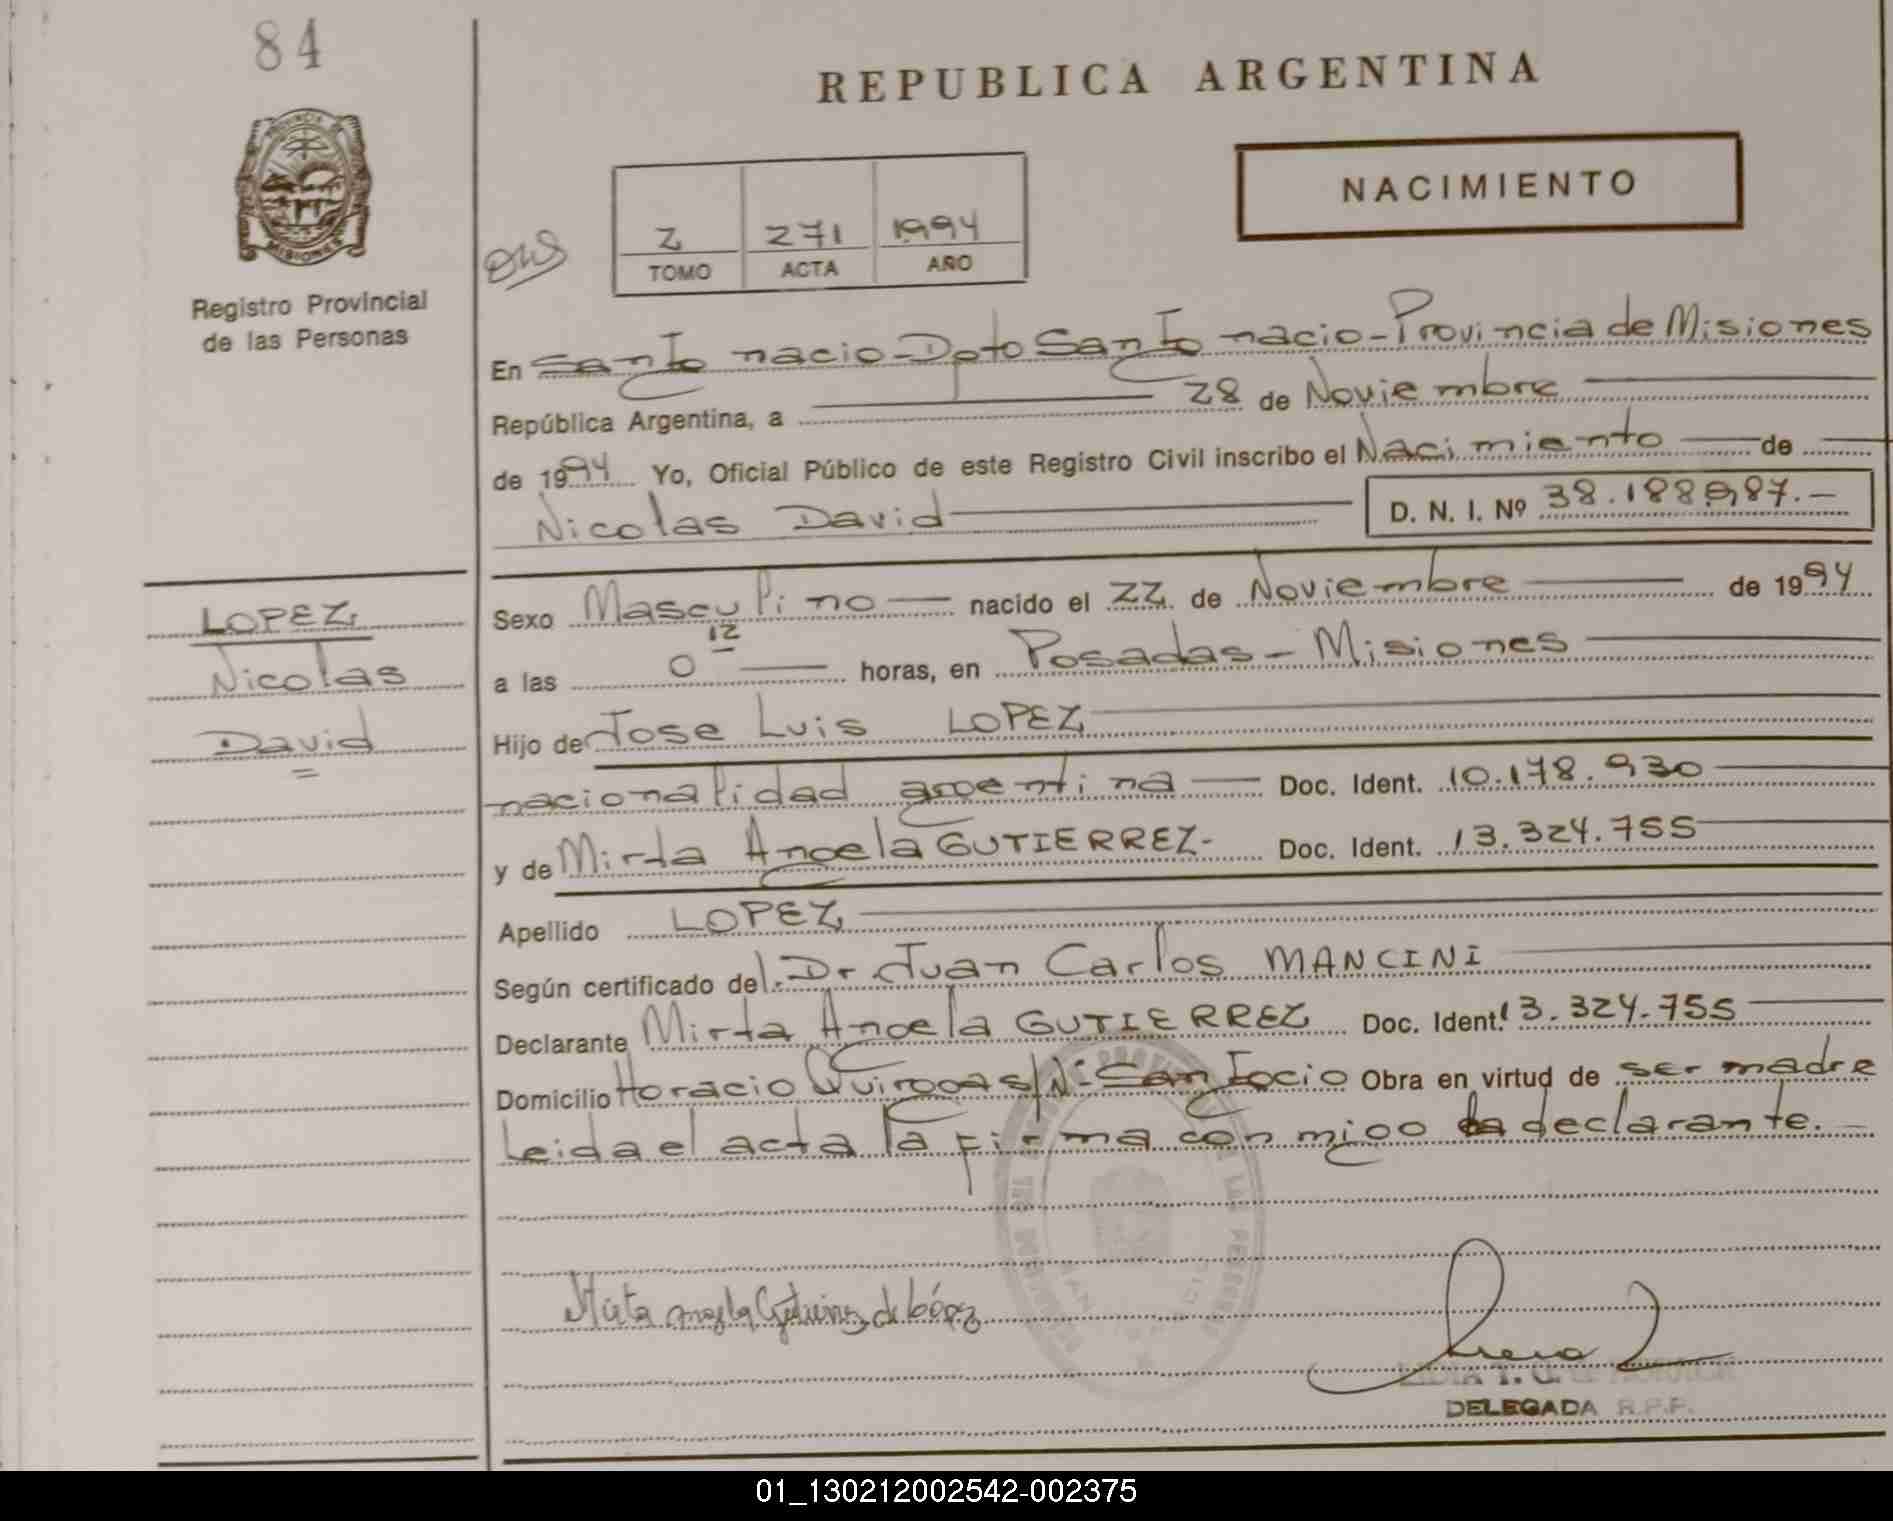 84
REPUBLICA ARGENTINA
PROVINCIA DE MISIONES
NACIMIENTO
2 271 1994
TOMO ACTA AÑO
Registro Provincial
de las Personas
En San Ignacio - Dpto San Ignacio - Provincia de Misiones
República Argentina, a 28 de Noviembre
de 1994 Yo, Oficial Público de este Registro Civil inscribo el Nacimiento de
Nicolas David D. N. I. Nº 38.188.987.-
LOPEZ
Nicolas
David
Sexo Masculino nacido el 22 de Noviembre de 1994
a las 0 12 horas, en Posadas - Misiones
Hijo de Jose Luis LOPEZ
nacionalidad argentina Doc. Ident. 10.178.930
y de Mirta Angela GUTIERREZ- Doc. Ident. 13.324.755
Apellido LOPEZ
Según certificado del Dr Juan Carlos MANCINI
Declarante Mirta Angela GUTIERREZ Doc. Ident. 13.324.755
Domicilio Horacio Quiroga S/Nº San Igcio Obra en virtud de ser madre
Leida el acta la firma conmigo la declarante.
Mirta Angela Gutierrez de López
DELEGADA R.P.P.
01_130212002542-002375